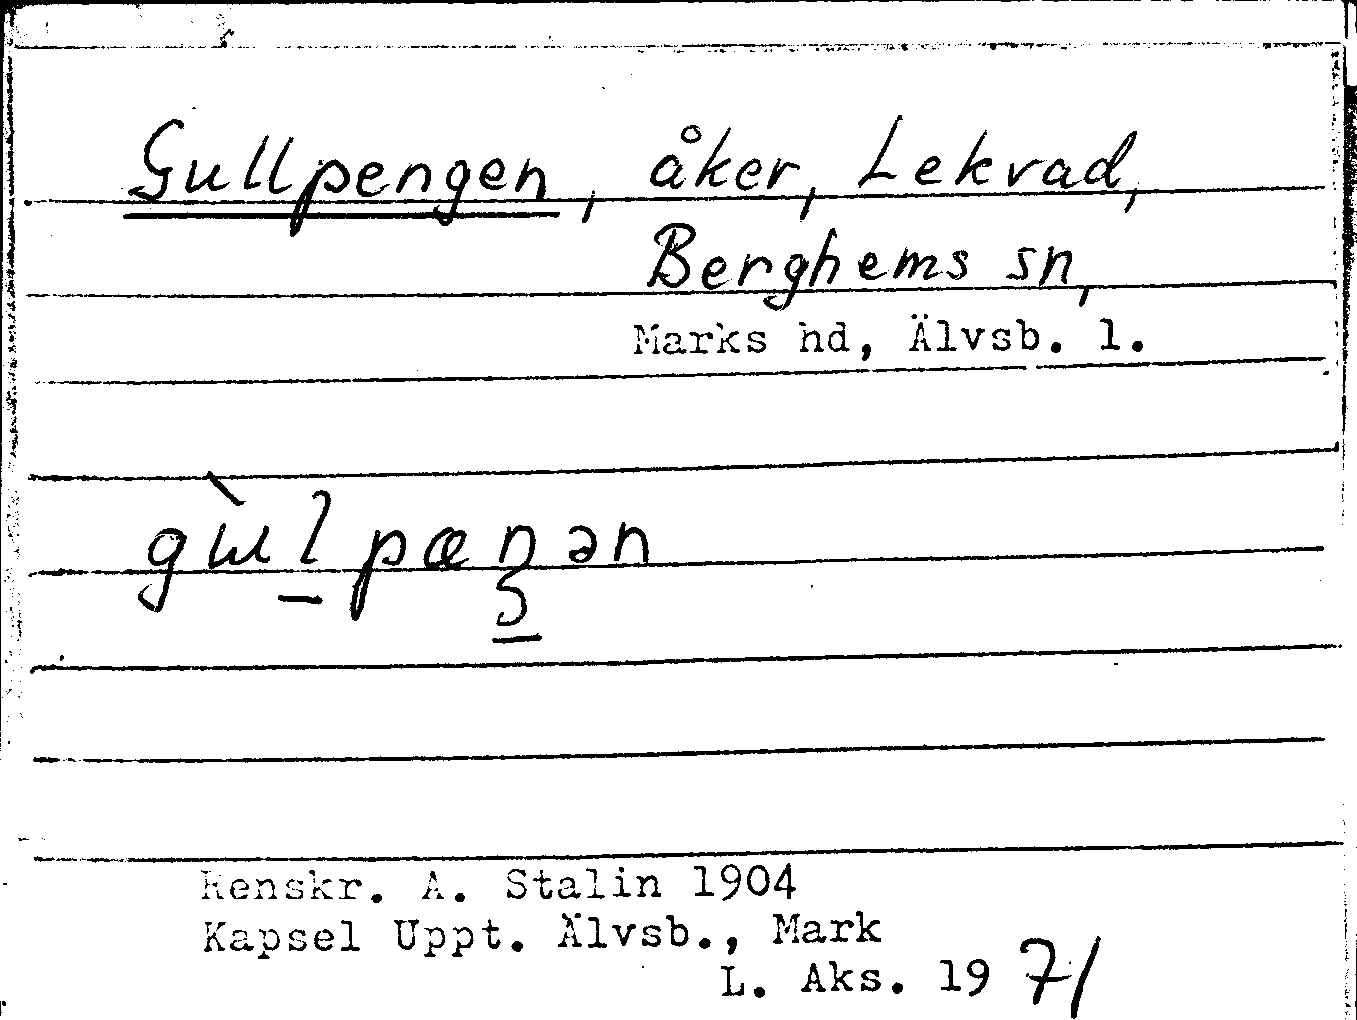 Gullpengen, åker, Lekvad,
Berghems sn,
Marks hd, Älvsb. l.
gɯ̀l̠pæŋ̠ən
Renskr. A. Stalin 1904
Kapsel Uppt. Älvsb., Mark
L. Aks. 1971